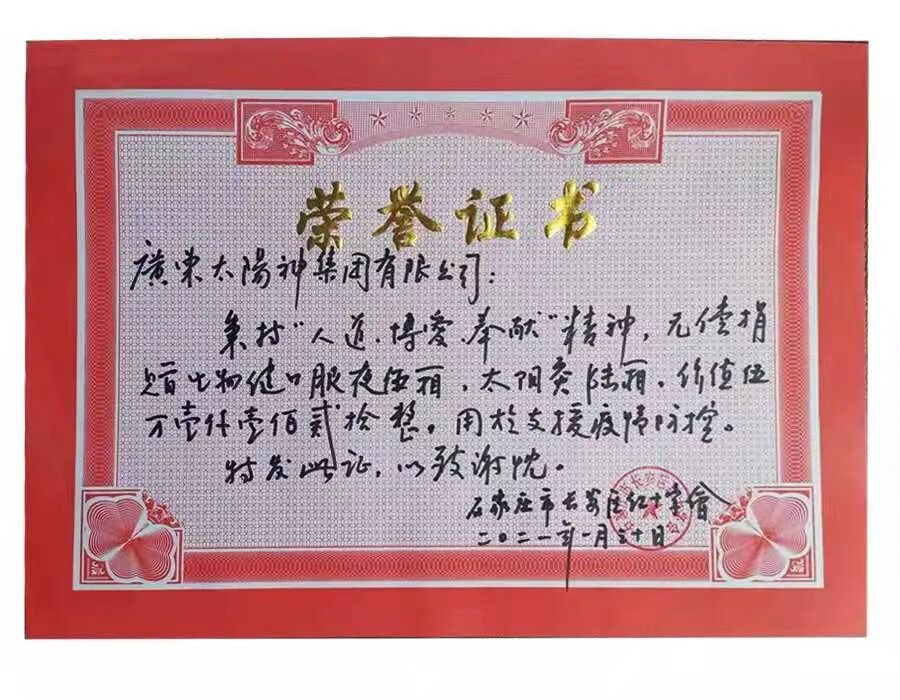 荣誉证书
廣東太陽神集团有限公司：
秉持“人道、博愛、奉献”精神，无偿捐
赠生物健口服液伍箱，太阳灸陆箱，价值伍
万壹仟壹佰贰拾整。用於支援疫情防控。
特发此证，以致谢忱。
石家庄市长安区红十字會
二〇二一年一月三十日